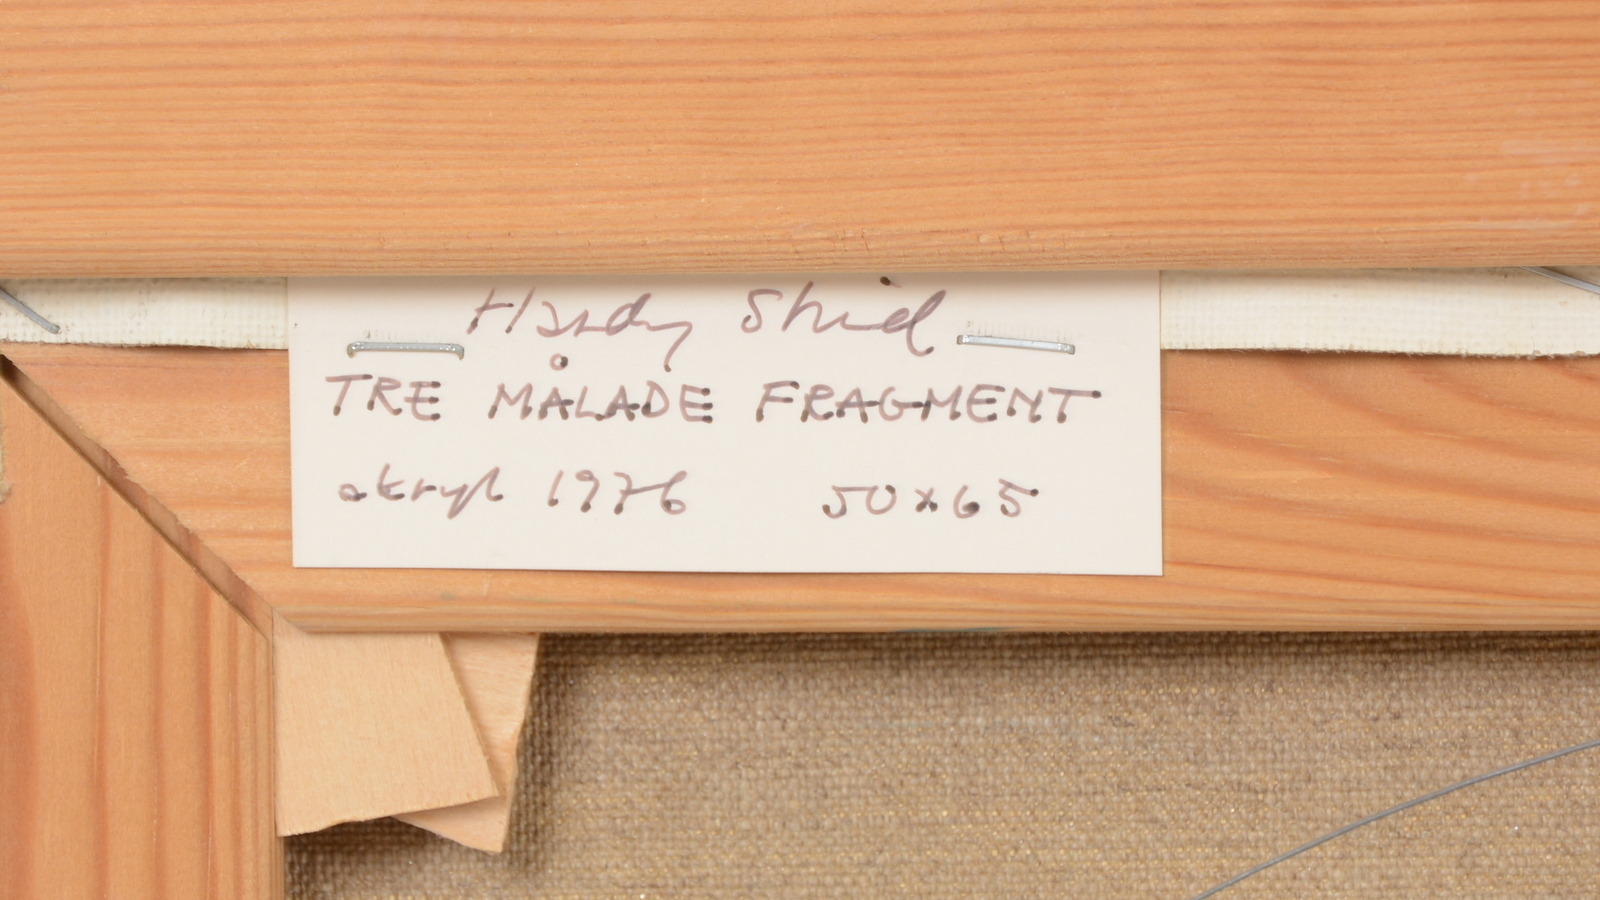 Hardy Strid
TRE MÅLADE FRAGMENT
akryl 1976 50x65